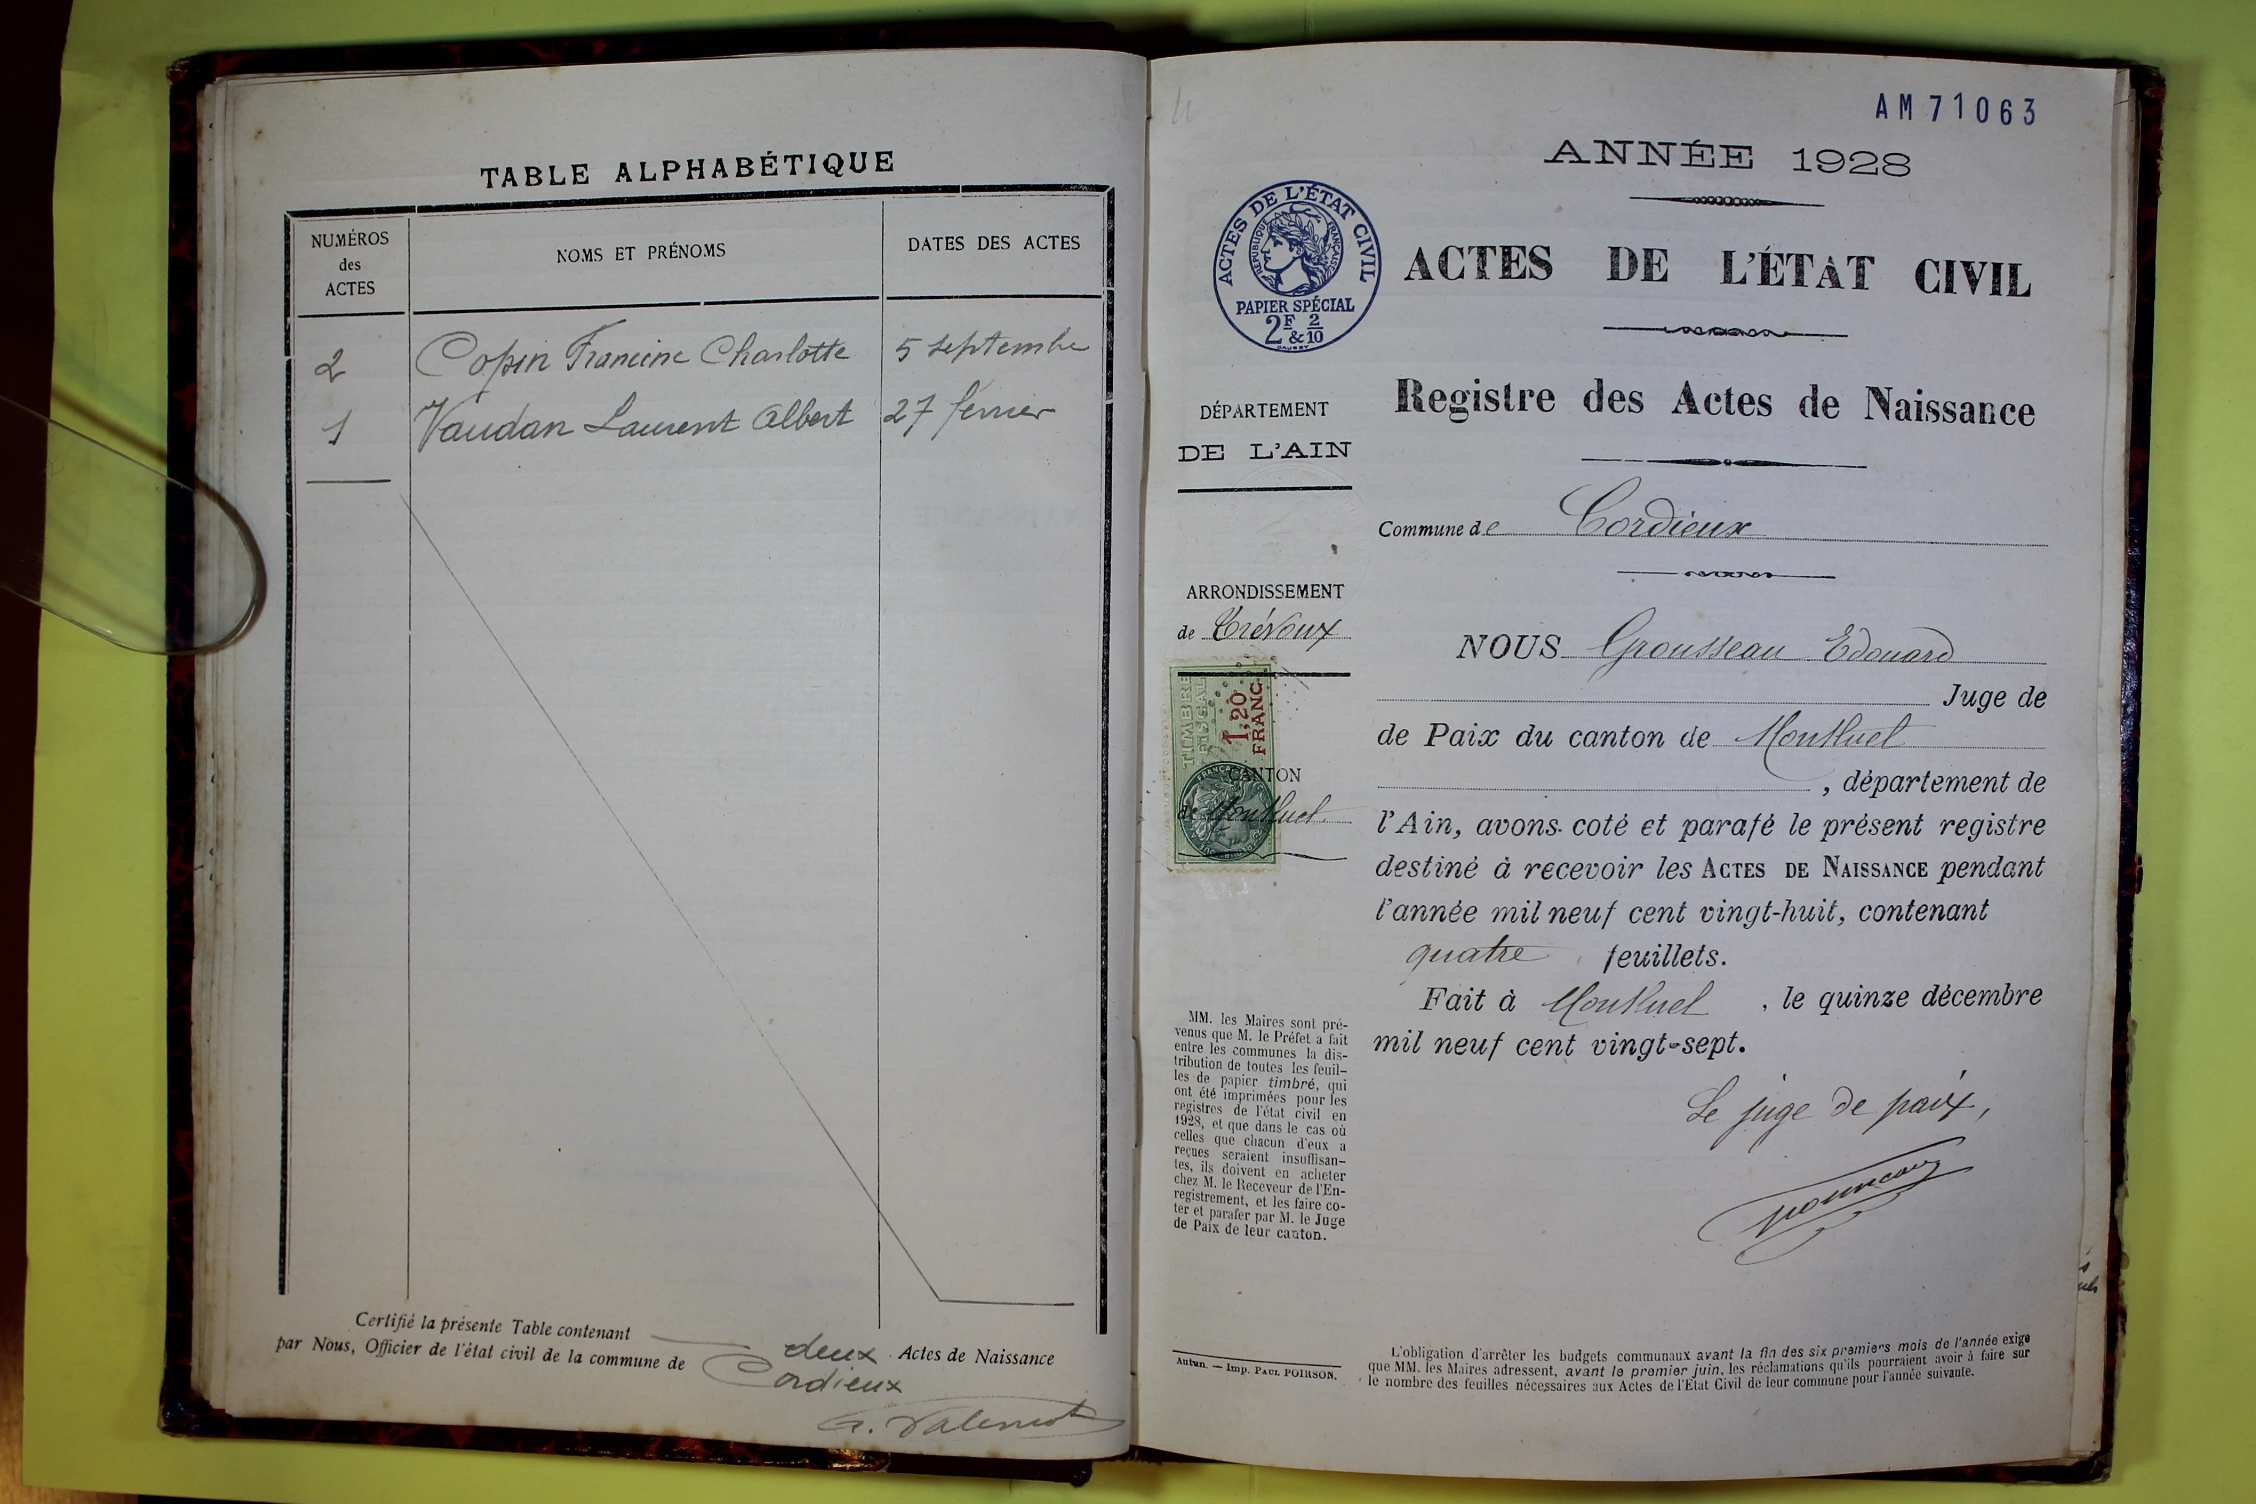 TABLE ALPHABÉTIQUE
NUMÉROS
des
ACTES
NOMS ET PRÉNOMS
DATES DES ACTES
2 Copin Francine Charlotte 5 septembre
1 Vaudan Laurent Albert 27 février
Certifié la présente Table contenant deux Actes de Naissance
par Nous, Officier de l'état civil de la commune de Cordieux
AM71063
ANNÉE 1928
ACTES DE L'ÉTAT CIVIL
RÉPUBLIQUE FRANÇAISE
PAPIER SPÉCIAL
2F & 2/10
ACTES DE L'ÉTAT CIVIL
Registre des Actes de Naissance
DÉPARTEMENT
DE L'AIN
Commune de Cordieux
ARRONDISSEMENT
de Trévoux
TIMBRE
FISCAL
1,20
FRANC
CANTON
de Montluel
NOUS Grousseau Edouard
Juge de
de Paix du canton de Montluel
, département de
l'Ain, avons coté et parafé le présent registre
destiné à recevoir les ACTES DE NAISSANCE pendant
l'année mil neuf cent vingt-huit, contenant
quatre feuillets.
Fait à Montluel, le quinze décembre
mil neuf cent vingt-sept.
Le juge de paix,
MM. les Maires sont pré-
venus que M. le Préfet a fait
entre les communes la dis-
tribution de toutes les feuil-
les de papier timbré, qui
ont été imprimées pour les
registres de l'état civil en
1928, et que dans le cas où
celles que chacun d'eux a
reçues seraient insuffisan-
tes, ils doivent en acheter
chez M. le Receveur de l'En-
registrement, et les faire co-
ter et parafer par M. le Juge
de Paix de leur canton.
Autun. — Imp. PAUL POIRSON.
L'obligation d'arrêter les budgets communaux avant la fin des six premiers mois de l'année exige
que MM. les Maires adressent, avant le premier juin, les réclamations qu'ils pourraient avoir à faire sur
le nombre des feuilles nécessaires aux Actes de l'État Civil de leur commune pour l'année suivante.